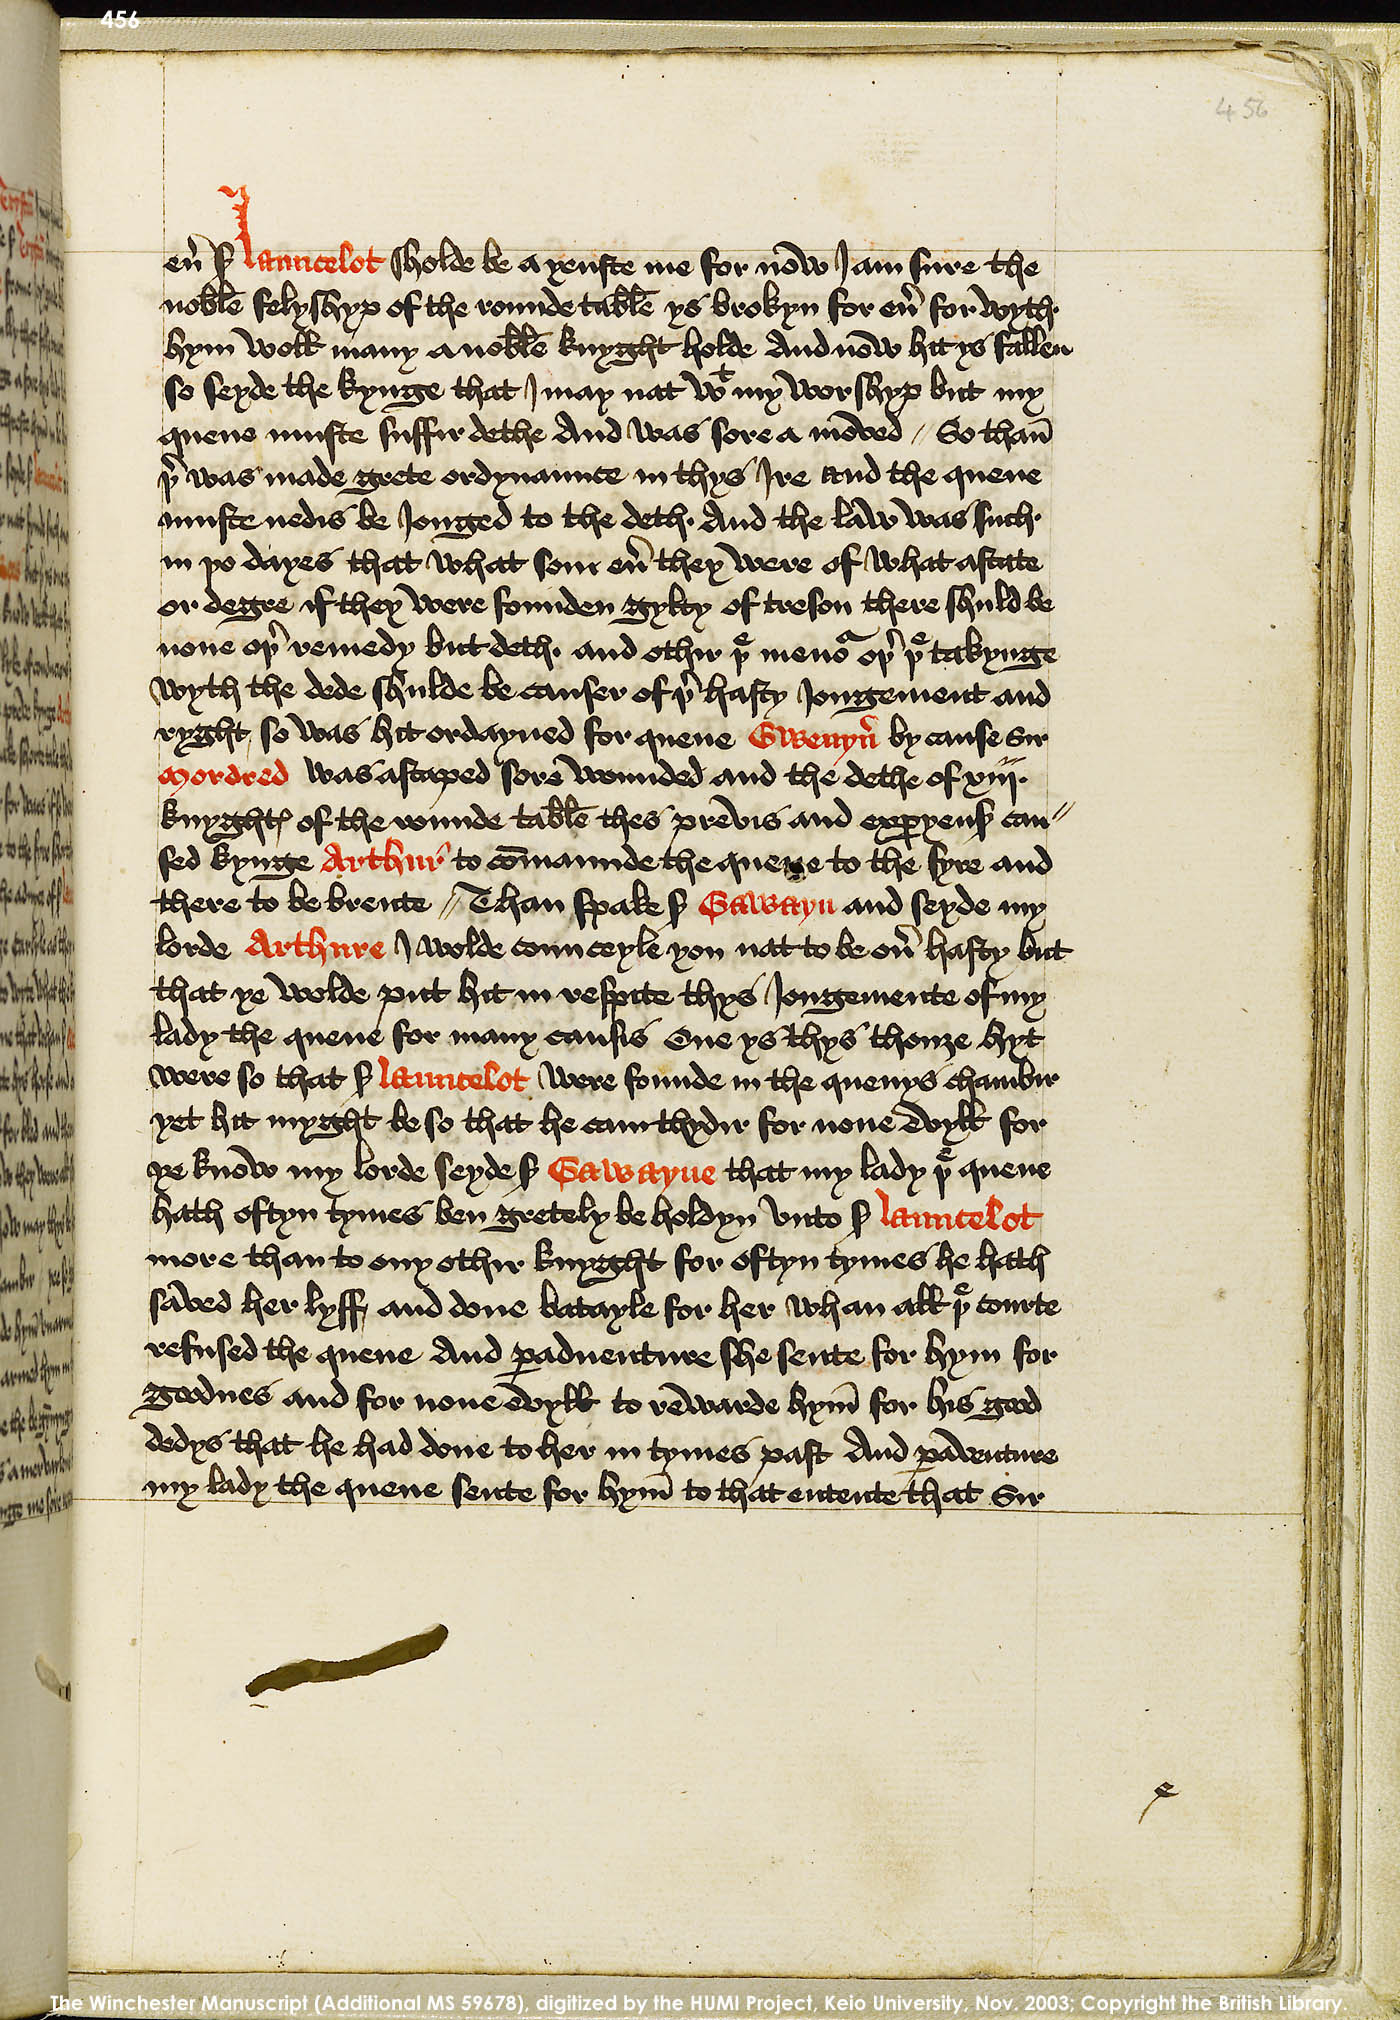 456
456
eu̅ ẜ Launcelot sholde be a yenste me for now I am sure the
noble felyshyp of the rounde table ys brokyn for eu̅ for wyth
hym woll many a noble knyght holde And now hit ys fallen
so seyde the kynge that I may nat wᵗ my worshyp but my
quene muste suffir dethe And was sore a moved // So than̅
þ̅ was made grete ordynaunce in thys Ire and the quene
muste nedis be Jouged to the deth. And the law was such
in þo dayes that what som eu̅ they were of what astate
or degre if they were founden gylty of treson there shuld be
none oþ̅ remedy but deth. and othir þᵉ menoʳ oþ̅ þᵉ takynge
wyth the dede shulde be causer of þ̅ hasty Jougement and
ryght so was hit ordayned for quene Gwenyu̅ by cause Sir
Mordred was ascaped sore wounded and the dethe of xiij.
knyghtꝭ of the rounde table thes previs and exꝑyenẜ cau //
sed kynge Arthur to co̅maunde the quene to the fyre and
there to be brente // Than spake ẜ Gawayn and seyde my
lorde Arthure I wolde counceyle you nat to be ou̅ hasty but
that ye wolde put hit in respite thys Jougemente of my
lady the quene for many causis One ys thys thouze hyt
were so that ẜ Launcelot were founde in the quenys chambir
yet hit myght be so that he cam thydir for none evyll for
ye know my lorde seyde ẜ Gawayne that my lady þᵉ quene
hath oftyn tymes ben gretely be holdyn vnto ẜ Launcelot
more than to ony othir knyght for oftyn tymes he hath
saved her lyff and done batayle for her whan all þᵉ courte
refused the quene And ꝑaduenture she sente for hym for
goodnes and for none evyll to rewarde hym̅ for his good
dedys that he had done to her in tymes past And ꝑadventure
my lady the quene sente for hym̅ to that entente that Sir
The Winchester Manuscript (Additional MS 59678), digitized by the HUMI Project, Keio University, Nov. 2003; Copyright the British Library.